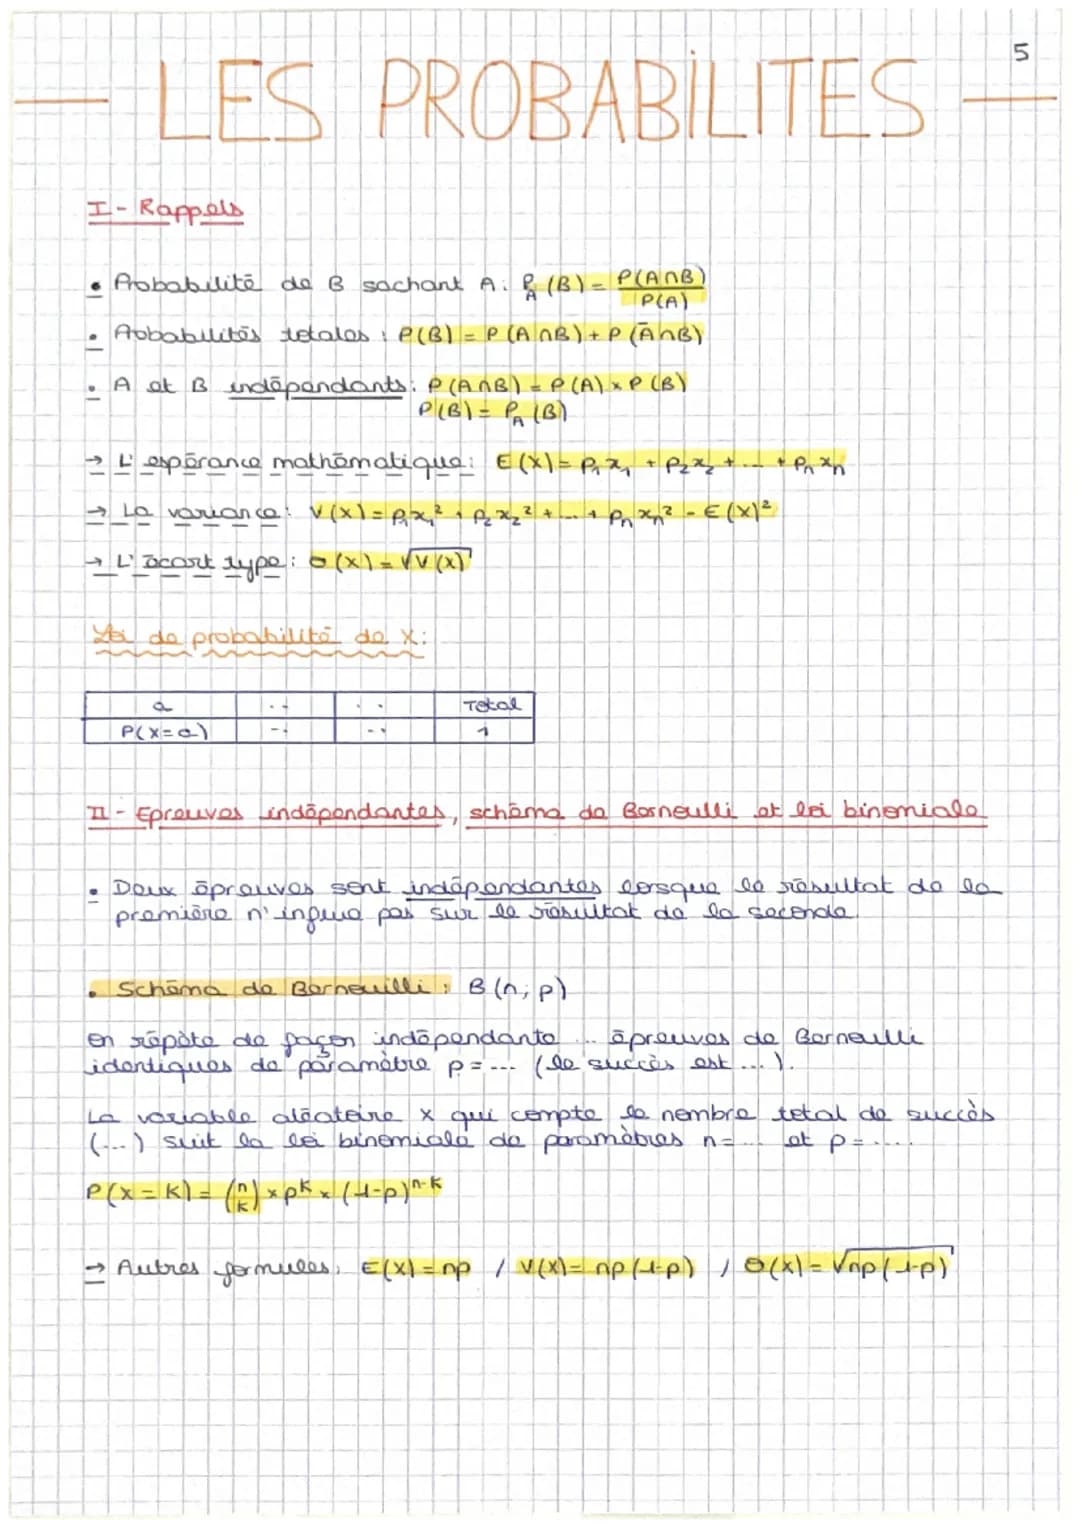 5
LES PROBABILITES
I - Rappels
• Probabilité de B sachant A : P_A (B) = P(A∩B) / P(A)
• Probabilités totales : P(B) = P(A∩B) + P(Ā∩B)
• A et B indépendants : P(A∩B) = P(A) × P(B)
P(B) = P_A (B)
→ L'espérance mathématique : E(X) = p₁x₁ + p₂x₂ + ... + pₙxₙ
→ La variance : V(X) = p₁x₁² + p₂x₂² + ... + pₙxₙ² - E(X)²
→ L'écart type : σ(X) = √V(X)
Loi de probabilité de X :
a .. .. Total
P(X=a) .. .. 1
II - Epreuves indépendantes, schéma de Bernoulli et loi binomiale
• Deux épreuves sont indépendantes lorsque le résultat de la
première n'influe pas sur le résultat de la seconde.
• Schéma de Bernouilli : B(n; p)
On répète de façon indépendante ... épreuves de Bernoulli
identiques de paramètre p = ... (le succès est ...).
La variable aléatoire X qui compte le nombre total de succès
(...) suit la loi binomiale de paramètres n = ... et p = ....
P(X = k) = (n k) × pᵏ × (1-p)ⁿ⁻ᵏ
→ Autres formules : E(X) = np / V(X) = np(1-p) / σ(X) = √np(1-p)